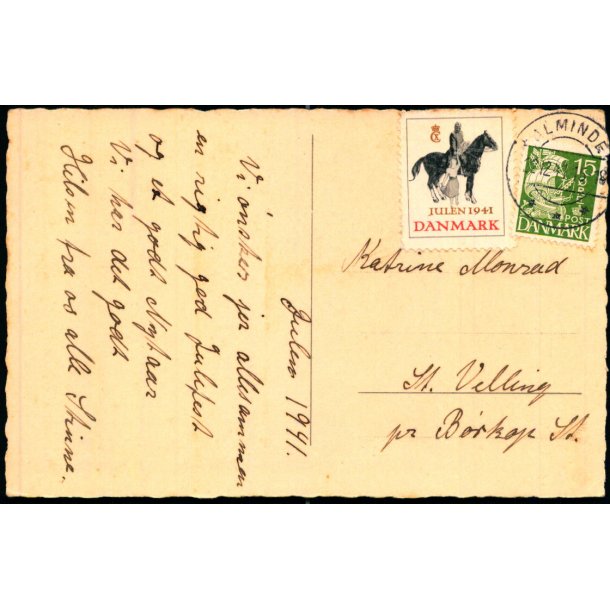 Julen 1941.
Vi önsker jer allesammen
en rigtig god Julefest
og et godt Nytaar
Vi har det godt
Hilsen fra os alle Stinne.
JULEN 1941
DANMARK
15
POST
DANMARK
Katrine Monrad
St. Velling
pr Börkop St.